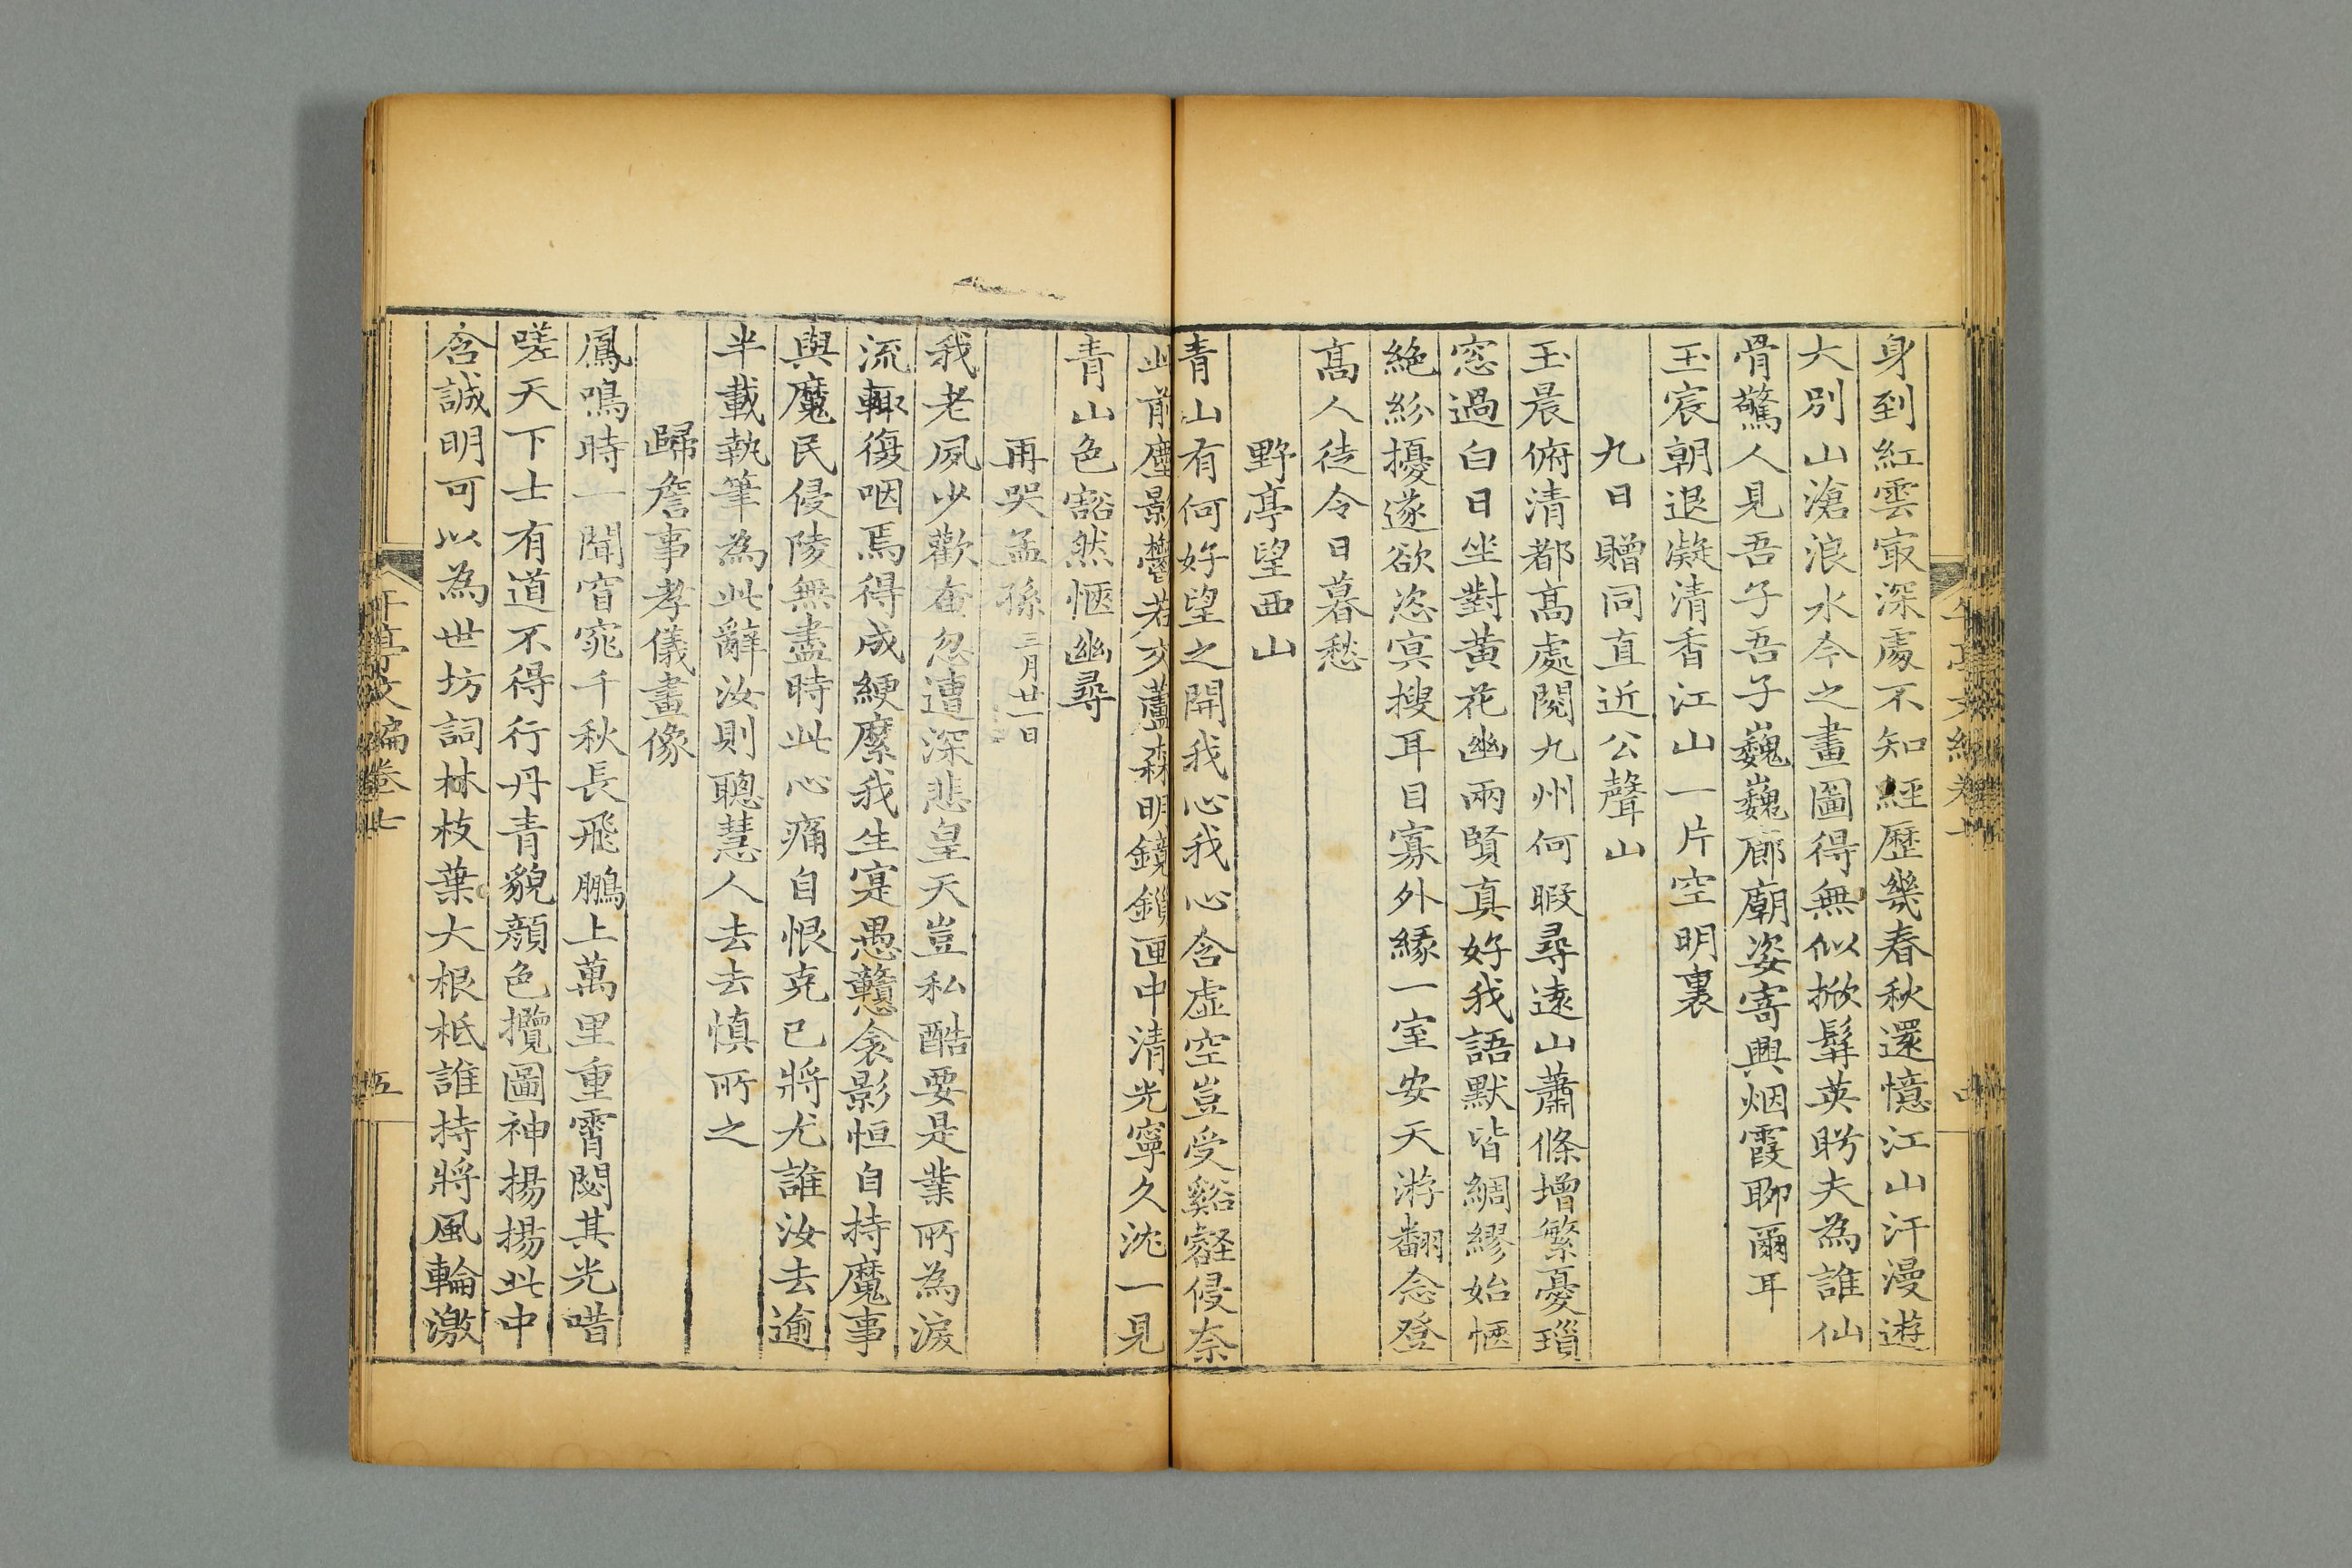 身到紅雲㝡深處不知經歷幾春秋還憶江山汗漫遊
大別山滄浪水今之畫圖得無似掀髯英眄夫為誰仙
骨驚人見吾子吾子巍巍廊廟姿寄興烟霞聊爾耳
玉宸朝退凝清香江山一片空明裏
九日贈同直近公聲山
玉晨俯清都高處閱九州何暇尋遠山蕭條增繁憂瑣
窓過白日坐對黃花幽兩賢真好我語默皆綢繆始愜
絶紛擾遂欲恣㝠搜耳目寡外緣一室安天游翻念登
高人徒令日暮愁
野亭望西山
青山有何好望之開我心我心含虛空豈受谿壑侵奈
此前塵影鬱若交蘆森明鏡鎖匣中清光寧久沈一見
青山色豁然愜幽尋
再哭孟孫三月廿一日
我老夙少歡奄忽遭深悲皇天豈私酷要是業所為淚
流輒復咽焉得成綆縻我生寔愚戇衾影恒自持魔事
與魔民侵陵無盡時此心痛自恨克己將尤誰汝去逾
半載執筆為此辭汝則聰慧人去去慎所之
歸詹事孝儀畫像
鳳鳴時一聞窅窕千秋長飛鵬上萬里重霄閟其光喈
嗟天下士有道不得行丹青貌顏色攬圖神揚揚此中
含誠明可以為世坊詞林枝葉大根柢誰持將風輪激
午亭文編卷七
五